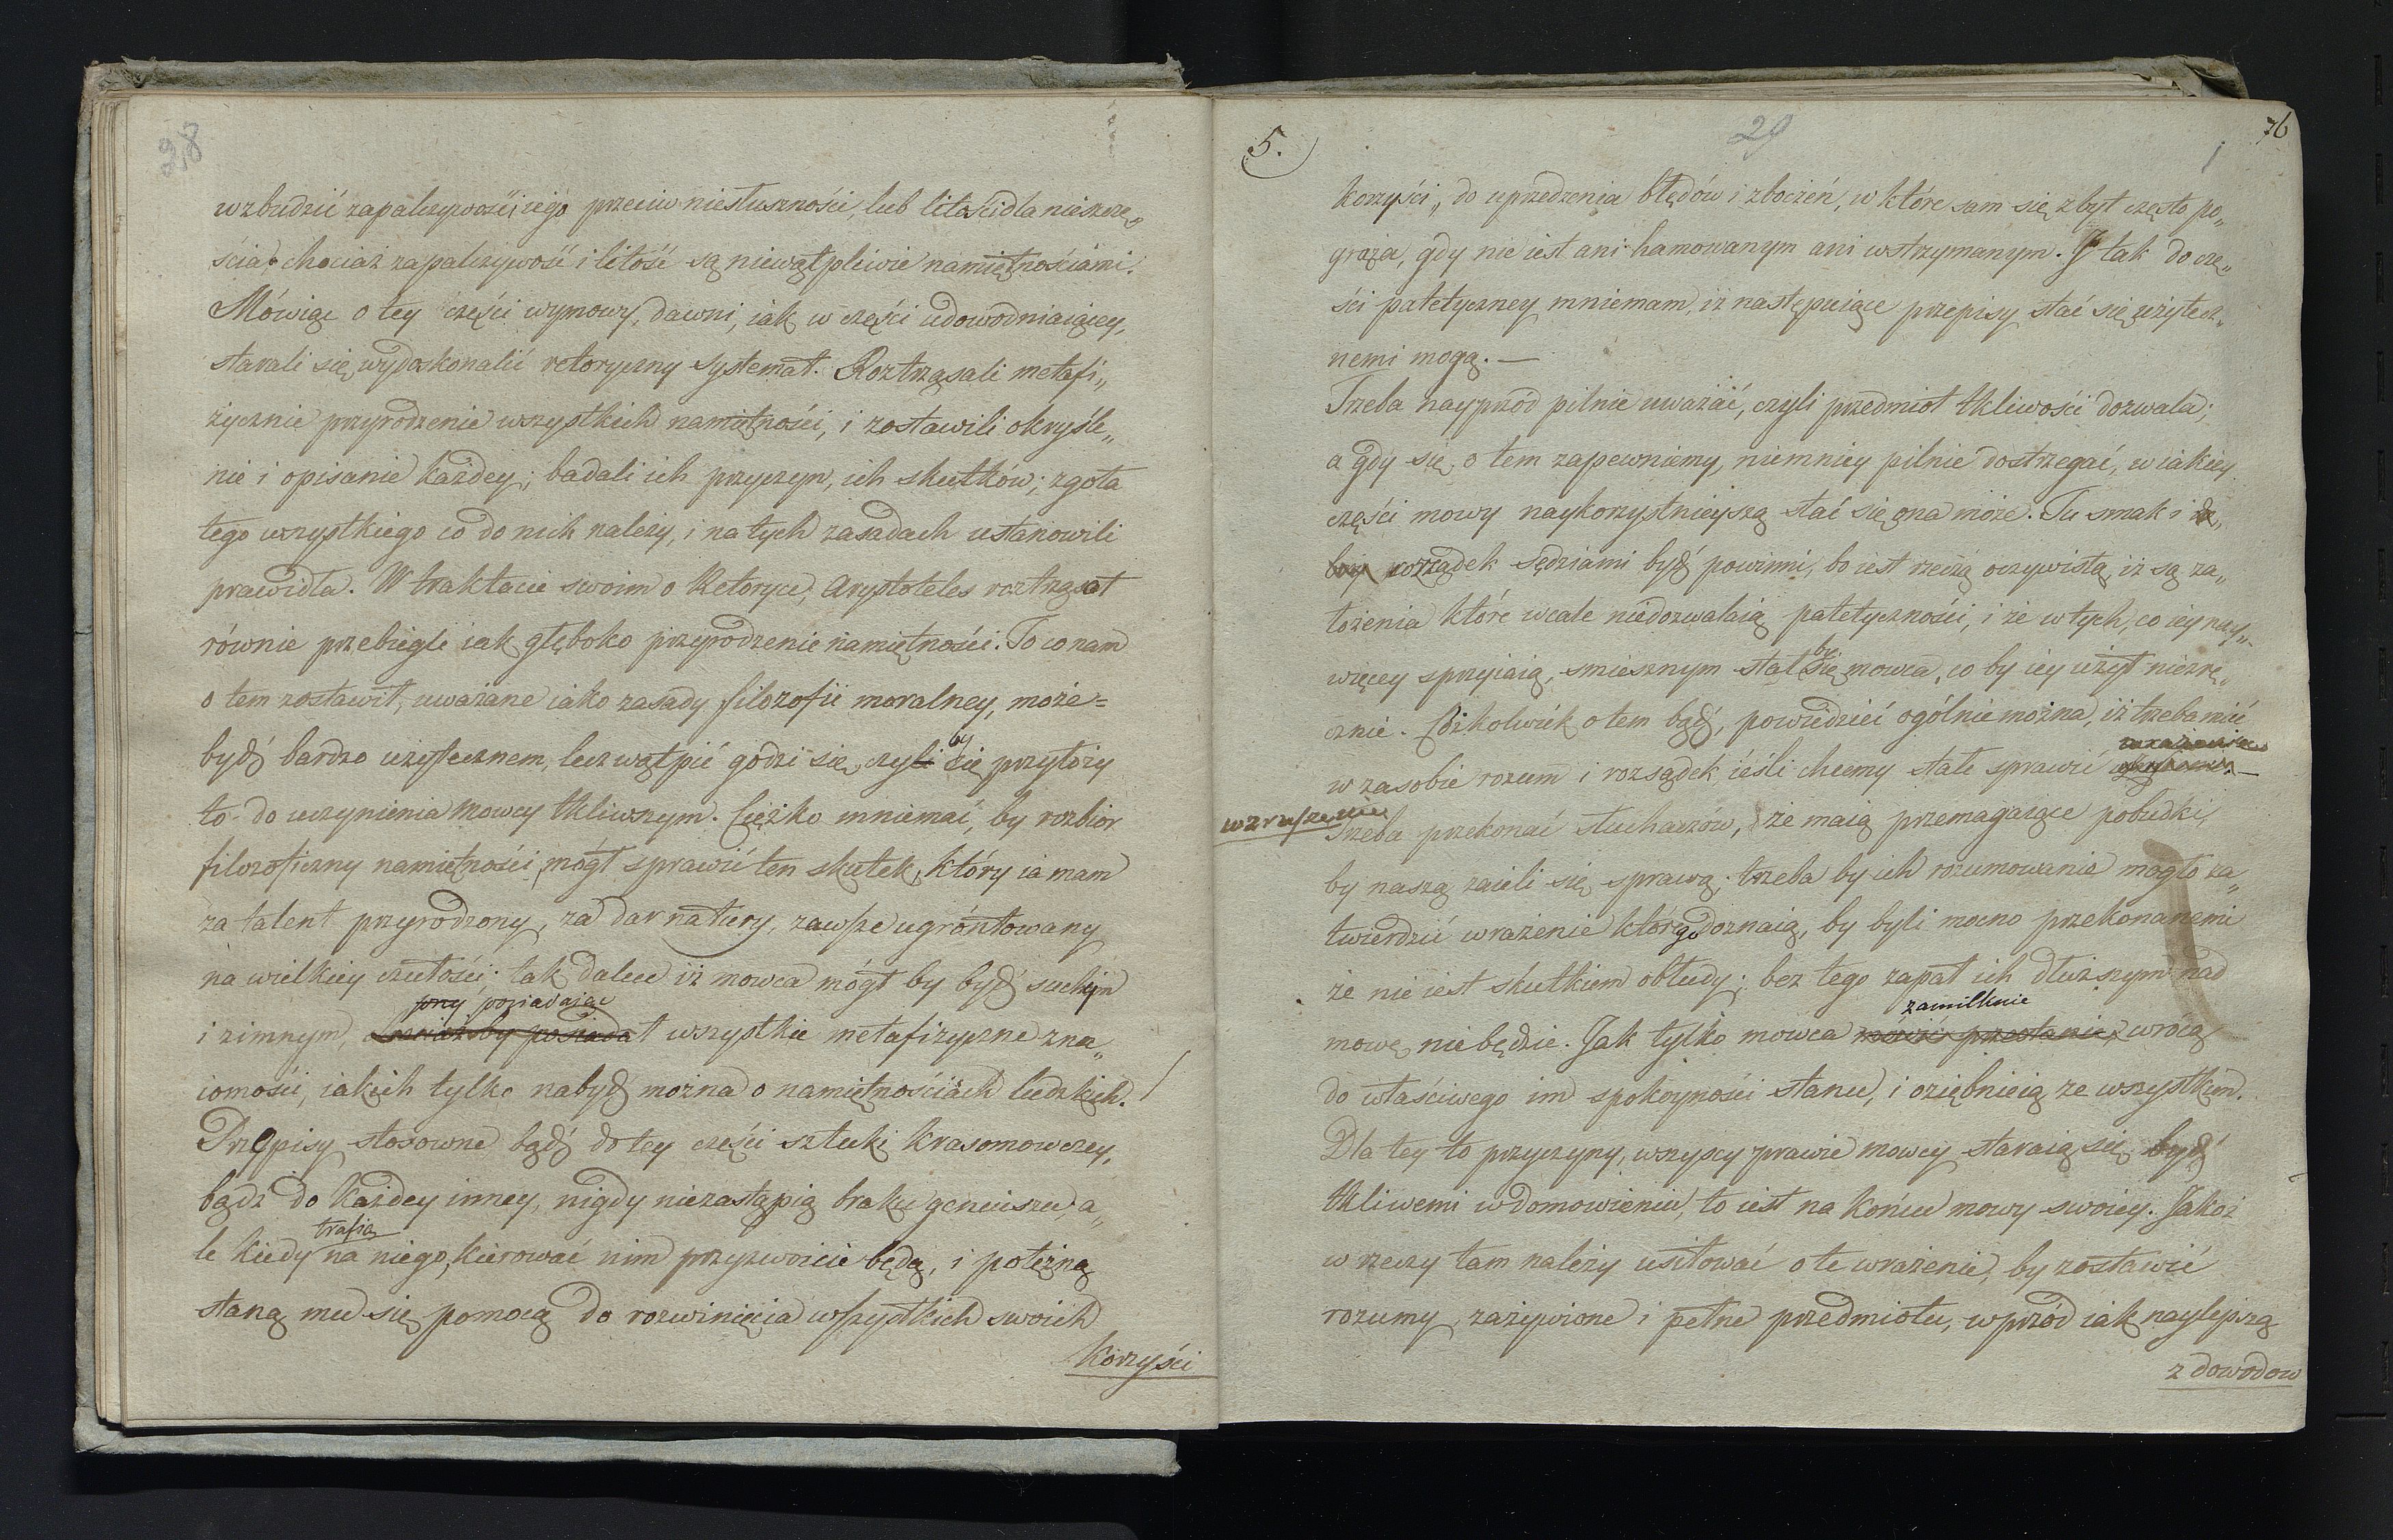 28
wzbudzić zapalczywość iego przeciw niesłuszności, lub litości dla nieszczę„
ścia, chociaż zapalczywość i litość są niewątpliwie namiętnościami.
Mówiąc o tey części wymowy, dawni, iak w części udowodniaiącey,
starali się wydoskonalić retoryczny systemat. Roztrząsali metafi„
zycznie przyrodzenie wszystkich namiętności, i zostawili okryśle„
nie i opisanie każdey; badali ich przyczyn, ich skutków; zgoła
tego wszystkiego co do nich należy, i na tych zasadach ustanowili
prawidła. W traktacie swoim o Retoryce, Arystoteles roztrząsał
równie przebiegle iak głęboko przyrodzenie namiętności. To co nam
o tem zostawił, uważane iako zasady filozofii moralney, może=
bydź bardzo użytecznem, lecz wątpić godzi się, czyli by się przyłoży
to do uczynienia mowcy tkliwszym. Ciężko mniemać, by rozbior
filozoficzny namiętności, mógł sprawić ten skutek, który ia mam
za talent przyrodzony, za dar natury, zawsze ugróntowany
na wielkiey czułości; tak dalece iż mowca mógł by bydź suchym
posiadaiąc
i zimnym, chociażby posiadał wszystkie metafizyczne zna„
iomości, iakich tylko nabydź można o namiętnościach ludzkich.
Przepisy stosowne bądź do tey części sztuki krasomowczey,
bądz do każdey inney, nigdy niezastąpią braku geniuszu, a„
trafią
le kiedy na niego, kierować nim przyzwoicie będą, i potężną
staną mu się pomocą do rozwinięcia wszystkich swoich
korzyści
5.
29
76
korzyści, do uprzedzenia błędów i zboczeń, w które sam się zbyt często po„
grąża, gdy nie iest ani hamowanym ani wstrzymanym. I tak do czę„
ści patetyczney mniemam, iż następuiące przepisy stać się użytecz„
nemi mogą. —
Trzeba nayprzód pilnie uważać, czyli przedmiot tkliwości dozwala;
a gdy się o tem zapewniemy, niemniey pilnie dostrzegać, w iakiey
części mowy naykorzystnieyszą stać się ona może. Tu smak i
rozsądek sędziami bydź powinni, bo iest rzeczą oczywistą, iż są za„
łożenia które wcale niedozwalaią patetyczności, i że w tych, co iey nay„
więcey sprzyiaią, smiesznym stał by się mowca, co by iey użył niezrę„
cznie. Cożkolwiek o tem bądź, powiedzieć ogólnie można, iż trzeba mieć
w zasobie rozum i rozsądek, ieśli chcemy stałe sprawić
wzruszenie
Trzeba przekonać słuchaczów, że maią przemagaiące pobudki,
by naszą zaieli się sprawą; trzeba by ich rozumowanie mogło za„
twierdzić wrażenie którego doznaią, by byli mocno przekonanemi
że nie iest skutkiem obłudy; bez tego zapał ich dłuższym nad
zamilknie
mowę niebędzie. Jak tylko mowca mówić przestanie, wrócą
do właściwego im spokoyności stanu, i oziębnieią ze wszystkim.
Dla tey to przyczyny, wszyscy prawie mowcy staraią się bydź
tkliwemi w domowieniu, to iest na końcu mowy swoiey. Jakoż
w rzeczy tam należy usiłować o te wrażenie, by zostawić
rozumy, zażywione i pełne przedmiotu, wprzód iak naylepszą
z dowodow